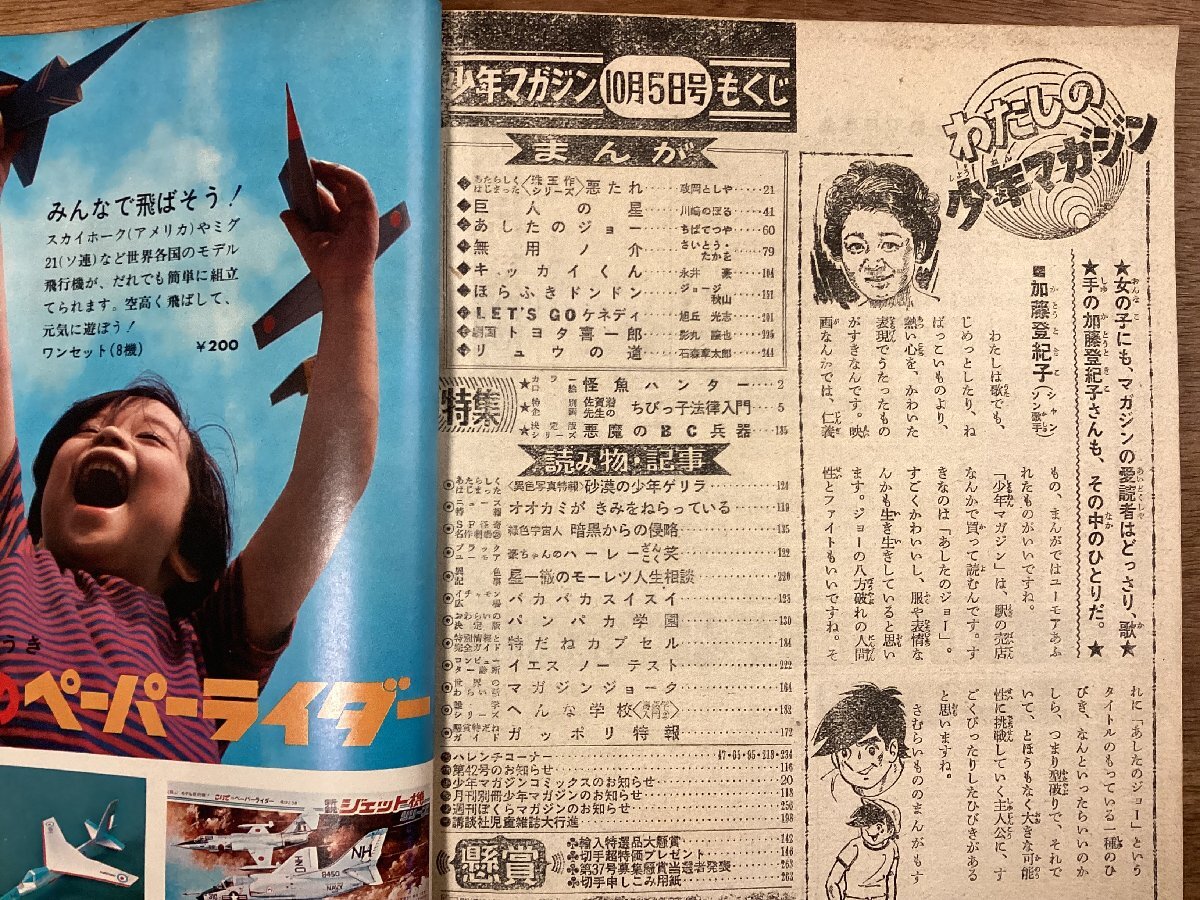 みんなで飛ばそう！
スカイホーク(アメリカ)やミグ
21(ソ連)など世界各国のモデル
飛行機が、だれでも簡単に組立
てられます。空高く飛ばして、
元気に遊ぼう！
ワンセット(8機) ￥200
ペーパーライダー
ペーパーライダー
ジェット機
NH
NAVY
少年マガジン 10月5日号 もくじ
まんが
あたらしくはじまった〈珠玉作シリーズ〉悪たれ 21
巨人の星 川崎のぼる 41
あしたのジョー ちばてつや 60
無用ノ介 さいとう・たかを 79
キッカイくん 永井豪 104
ほらふきドンドン ジョージ秋山 151
LET'S GOケネディ 旭丘光志 201
劇画トヨタ喜一郎 影丸譲也 225
リュウの道 石森章太郎 244
特集
★カラー 怪魚ハンター 2
★特別企画 佐賀潜先生の ちびっ子法律入門 5
★決定版シリーズ 悪魔のBC兵器 185
読み物・記事
あたらしくはじまった〈異色写真特報〉砂漠の少年ゲリラ 124
ニュース特報 オオカミが きみをねらっている 119
SF怪奇名作劇画 緑色宇宙人 暗黒からの侵略 135
ブラックユーモア 豪ちゃんのハーレーざんこく笑 122
異色記事 星一徹のモーレツ人生相談 220
イチャモン広場 バカバカスイスイ 123
おわらいの決定版 パンパカ学園 130
特別情報と完全ガイド 特だねカプセル 184
コンピューター診断 イエス ノー テスト 222
世界のわらい話 マガジンジョーク 164
雑学シリーズ へんな学校 132
懸賞特だねガイド ガッポリ特報 172
ハレンチコーナー 47・65・95・218・234
第42号のお知らせ 116
少年マガジンコミックスのお知らせ 20
月刊別冊少年マガジンのお知らせ 118
週刊ぼくらマガジンのお知らせ 250
講談社児童雑誌大行進 198
懸賞
輸入特選品大懸賞 142
切手超特価プレゼント 146
第37号募集懸賞当選者発表 263
切手申しこみ用紙 263
わたしの
少年マガジン
★女の子にも、マガジンの愛読者はどっさり、歌★
★手の加藤登紀子さんも、その中のひとりだ。★
加藤登紀子(シャンソン歌手)
わたしは歌でも、
じめっとしたり、ね
ばっこいものより、
熱い心を、かわいた
表現でうたったもの
がすきなんです。映
画なんかでは、仁義
もの、まんがではユーモアあふ
れたものがいいですね。
「少年マガジン」は、駅の売店
なんかで買って読むんです。す
きなのは「あしたのジョー」。
すごくかわいいし、服や表情な
んかも生き生きしていると思い
ます。ジョーの八方破れの人間
性とファイトもいいですね。そ
れに「あしたのジョー」という
タイトルのもっている一種のひ
びき、なんといったらいいのか
しら、つまり型破りで、それで
いて、とほうもなく大きな可能
性に挑戦していく主人公に、す
ごくぴったりしたひびきがある
と思いますね。
さむらいもののまんがもす